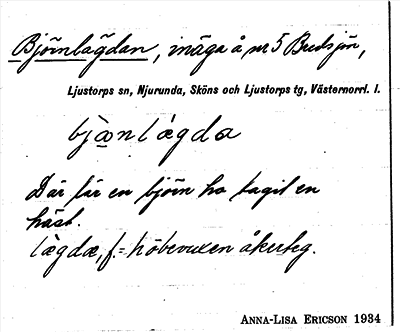 Björnlägdan, inäga å nr 5 Bredsjön,
Ljustorps sn, Njurunda, Sköns och Ljustorps tg, Västernorrl. l.
bjæ̀ɴlægda
Där lär en björn ha tagit en
häst.
lægda, f. = höbevuxen åkerteg.
ANNA-LISA ERICSON 1934